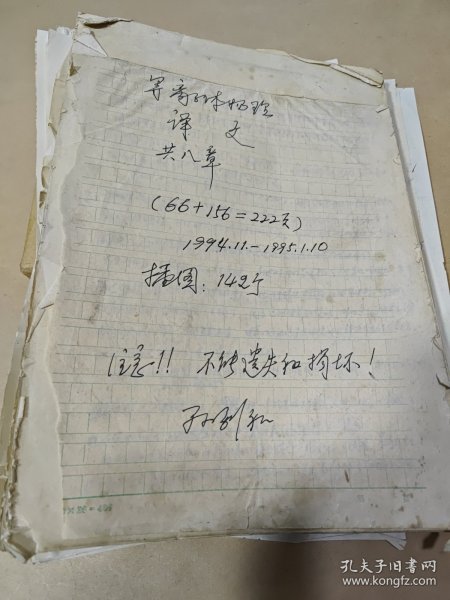 译文
共八章
(66+156=222页)
1994.11.—1995.1.10
插图：142个
注意!! 不能遗失和损坏!
孔夫子旧书网
www.kongfz.com